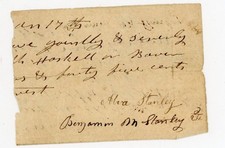 an 17th
we jointly & severly
th Haskell or Bare
s & forty five cents
rest
Alva Stanley
Benjamin M Stanley